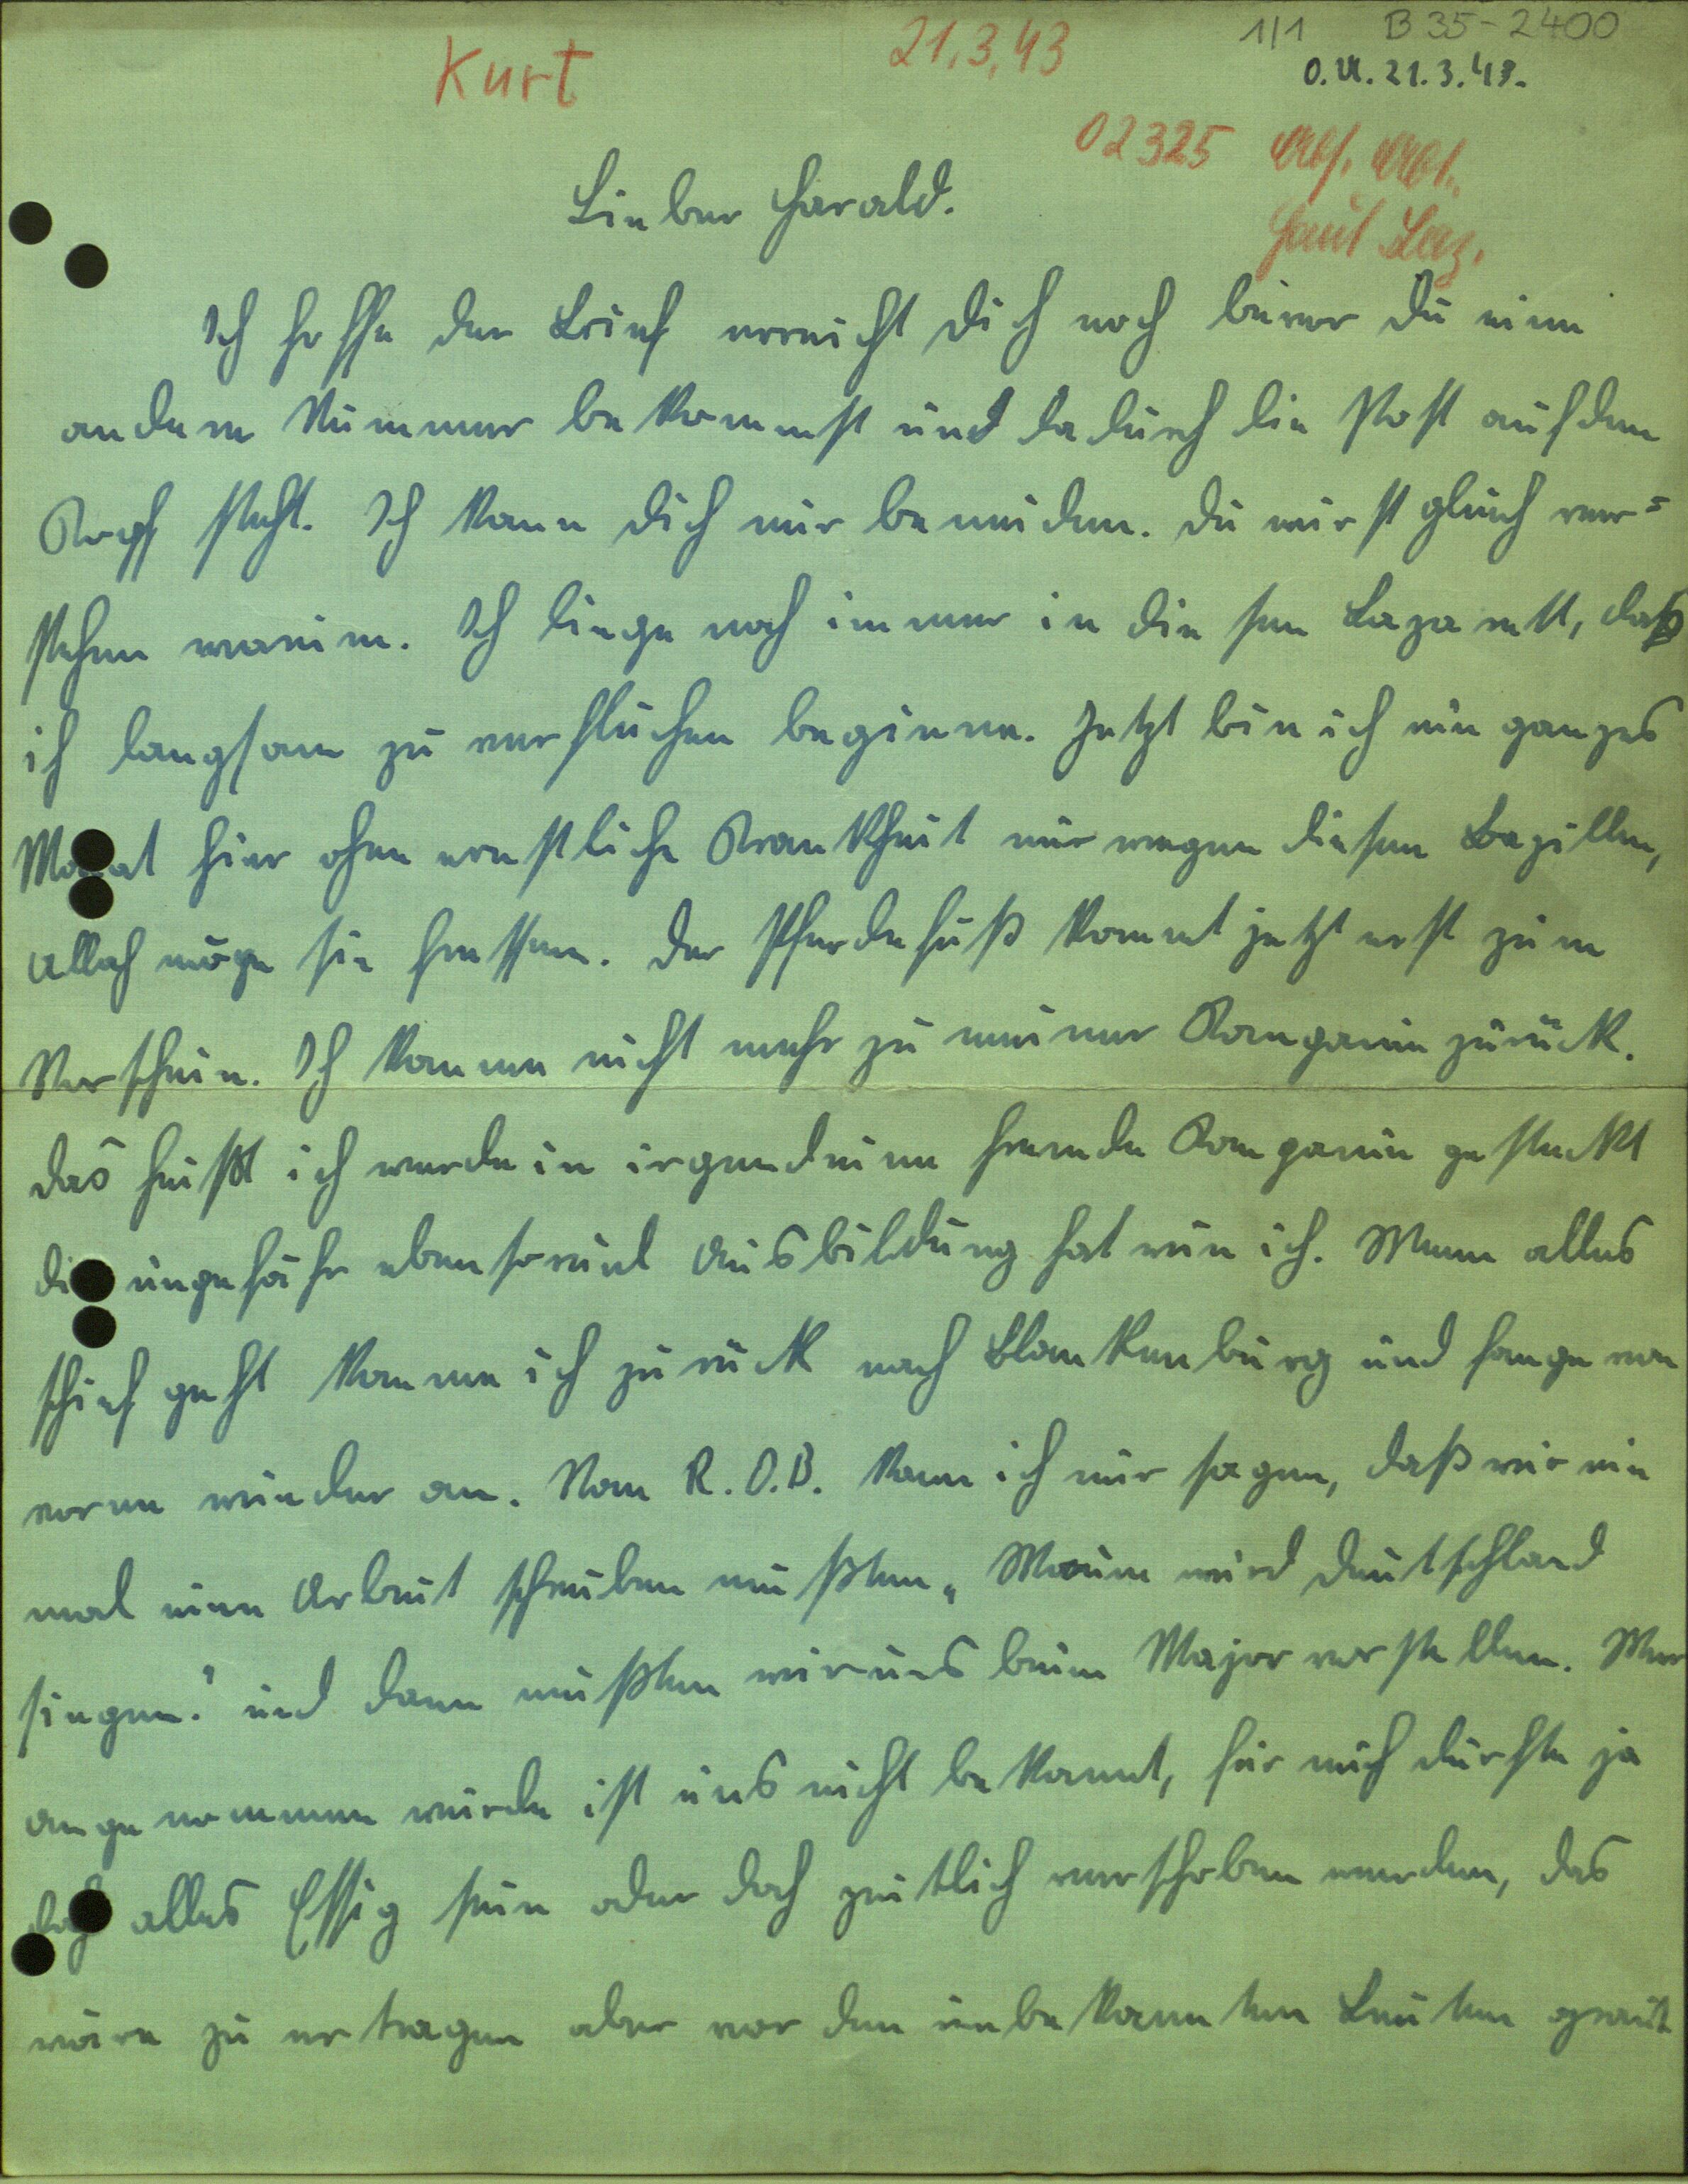 1/1 B 35-2400
Kurt 21.3.43
O.U. 21.3.43.
02325 Abt.
Haut Laz.
Lieber Harald.
Ich hoffe der Brief erreicht Dich noch bevor Du eine
andere Nummer bekommst und dadurch die Post auf dem
Kopf steht. Ich kann Dich nur beneiden. Du wirst gleich ver=
stehen warum. Ich liege noch immer in diesem Lazarett, daß
ich langsam zu verfluchen beginne. Jetzt bin ich ein ganzes
Monat hier ohne ernstliche Krankheit nur wegen diesen Bazillen,
Allah möge sie fressen. Der Pferdefuß kommt jetzt erst zum
Vorschein. Ich komme nicht mehr zu meiner Kompanie zurück.
Das heißt ich werde in irgendeine fremde Kompanie gesteckt
die ungefähr ebensoviel Ausbildung hat wie ich. Wenn alles
schief geht komme ich zurück nach Blankenburg und fange von
vorne wieder an. Vom R.O.B. kann ich nur sagen, daß wir ein
mal eine Arbeit schreiben mußten „Warum wird Deutschland
siegen." und dann mußten wir uns beim Major vorstellen. Wer
angenommen wurde ist uns nicht bekannt, für mich dürfte ja
doch alles Essig sein oder doch zeitlich verschoben werden, das
wäre zu ertragen aber vor den unbekannten Leuten graut